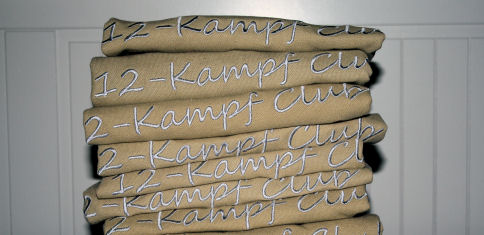 12-Kampf Club
12-Kampf Club
2-Kampf Club
2-Kampf Club
12-Kampf Cl
2-Kampf Club
2-Kampf Club